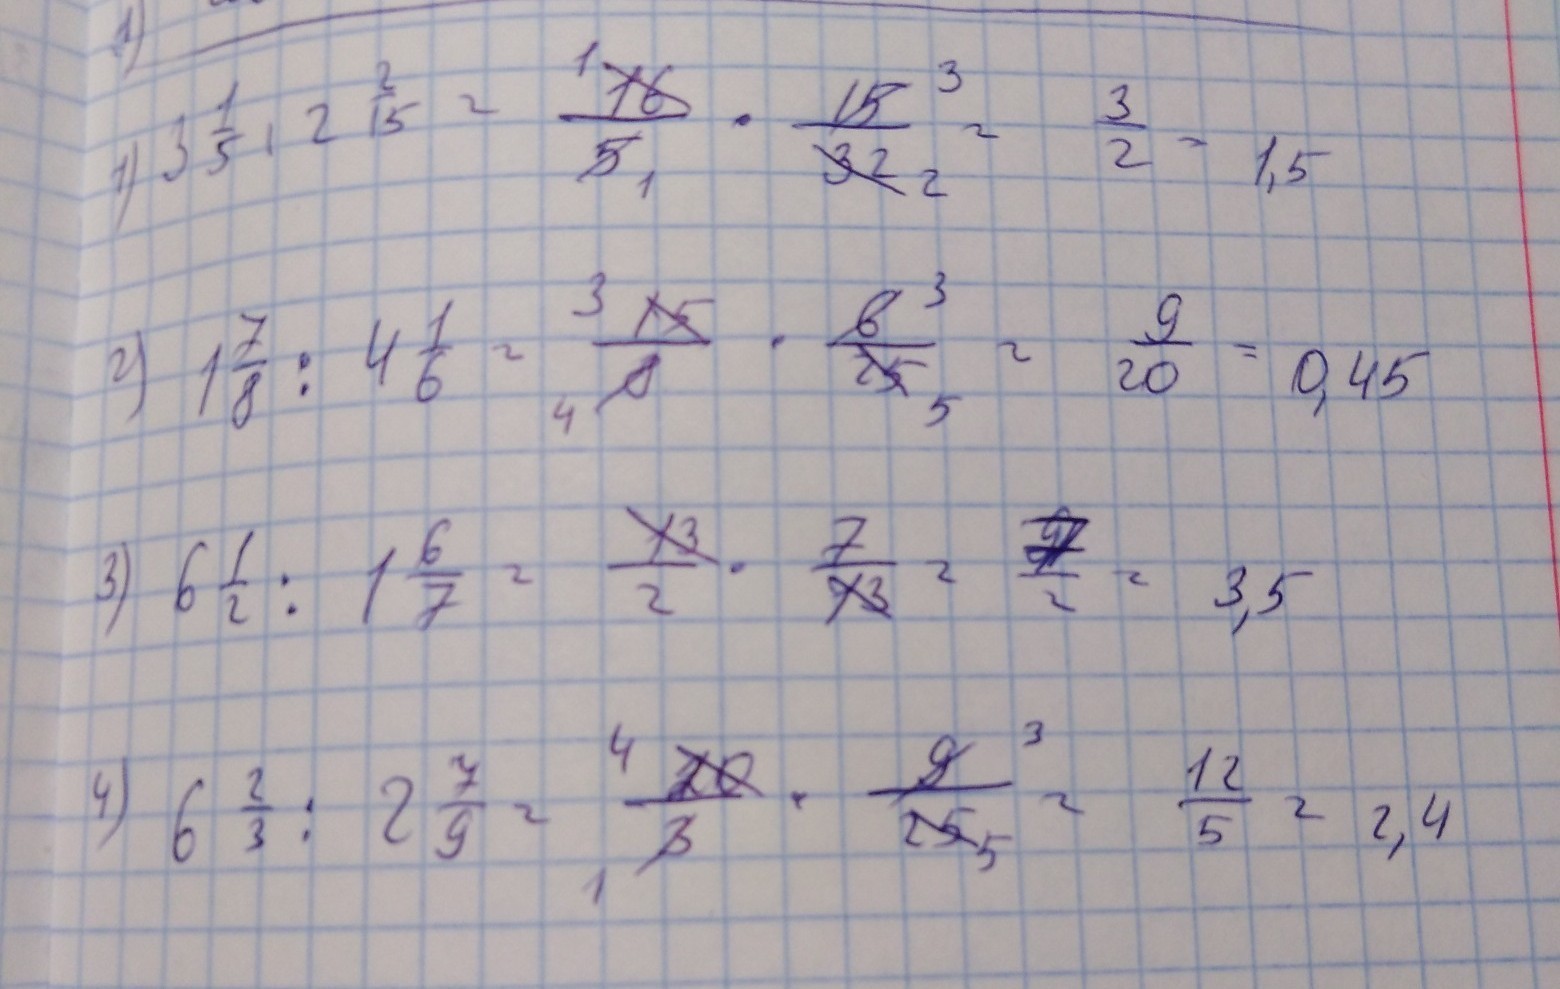 1)
1) 3 1/5 : 2 2/15 = 1 16/5 1 · 15/32 3 2 = 3/2 = 1,5
2) 1 7/8 : 4 1/6 = 3 15/8 4 · 6/25 3 5 = 9/20 = 0,45
3) 6 1/2 : 1 6/7 = 13/2 · 7/13 = 7/2 = 3,5
4) 6 2/3 : 2 7/9 = 4 20/3 1 · 9/25 3 5 = 12/5 = 2,4